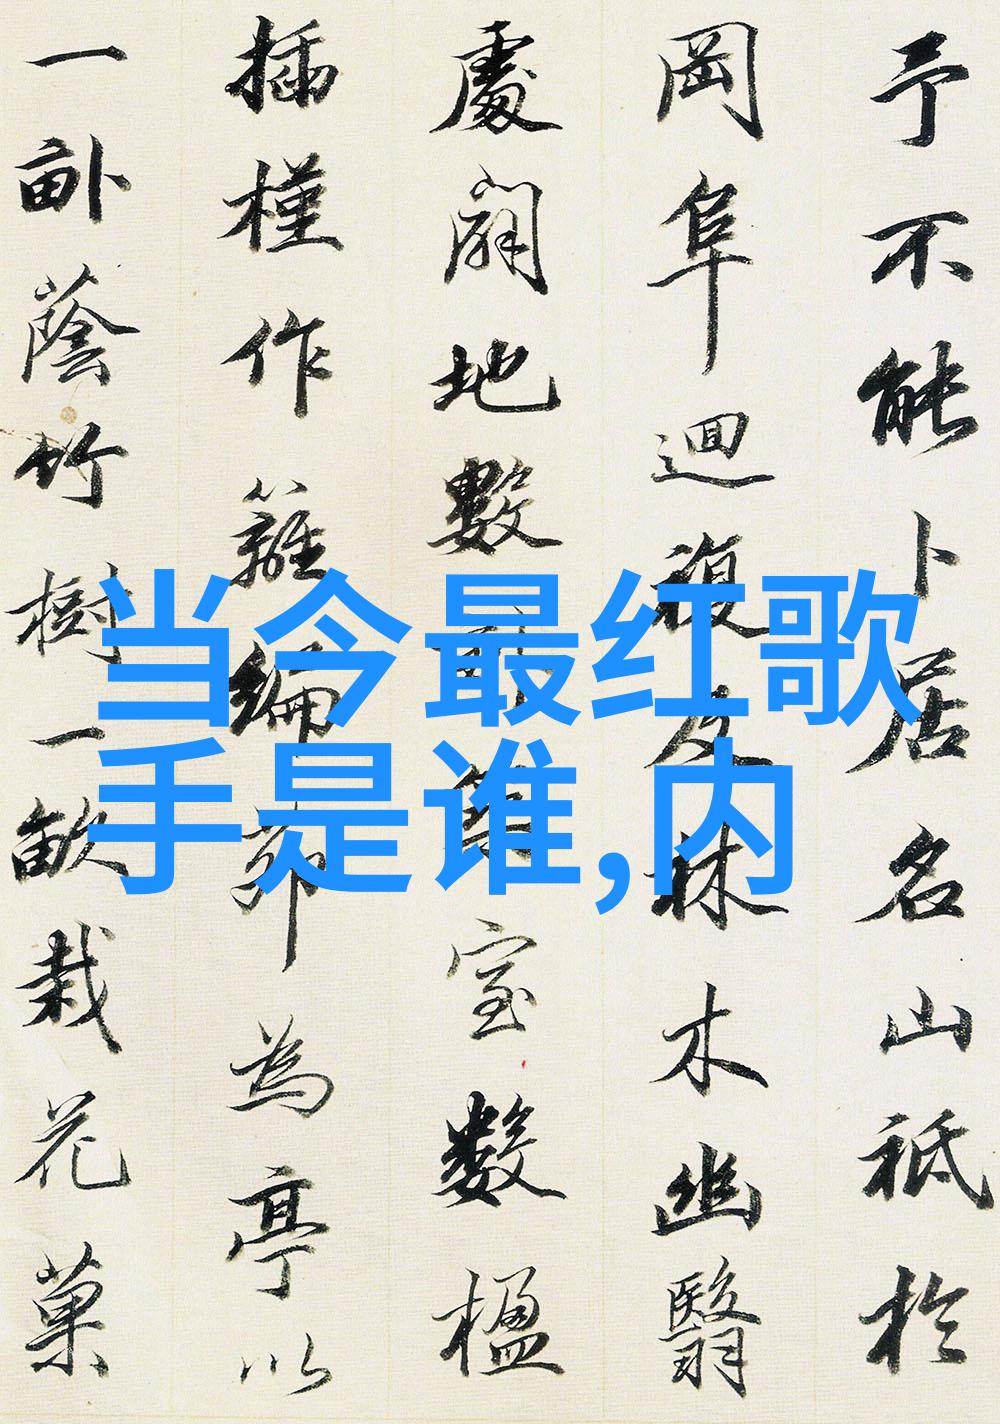 予不能卜居名山祗於
岡阜迴複及林木幽翳
處廓地數畝築室數楹
插槿作籬編茆為亭以
一畝蔭竹樹一畝栽花菓
当今最红歌
手是谁,内